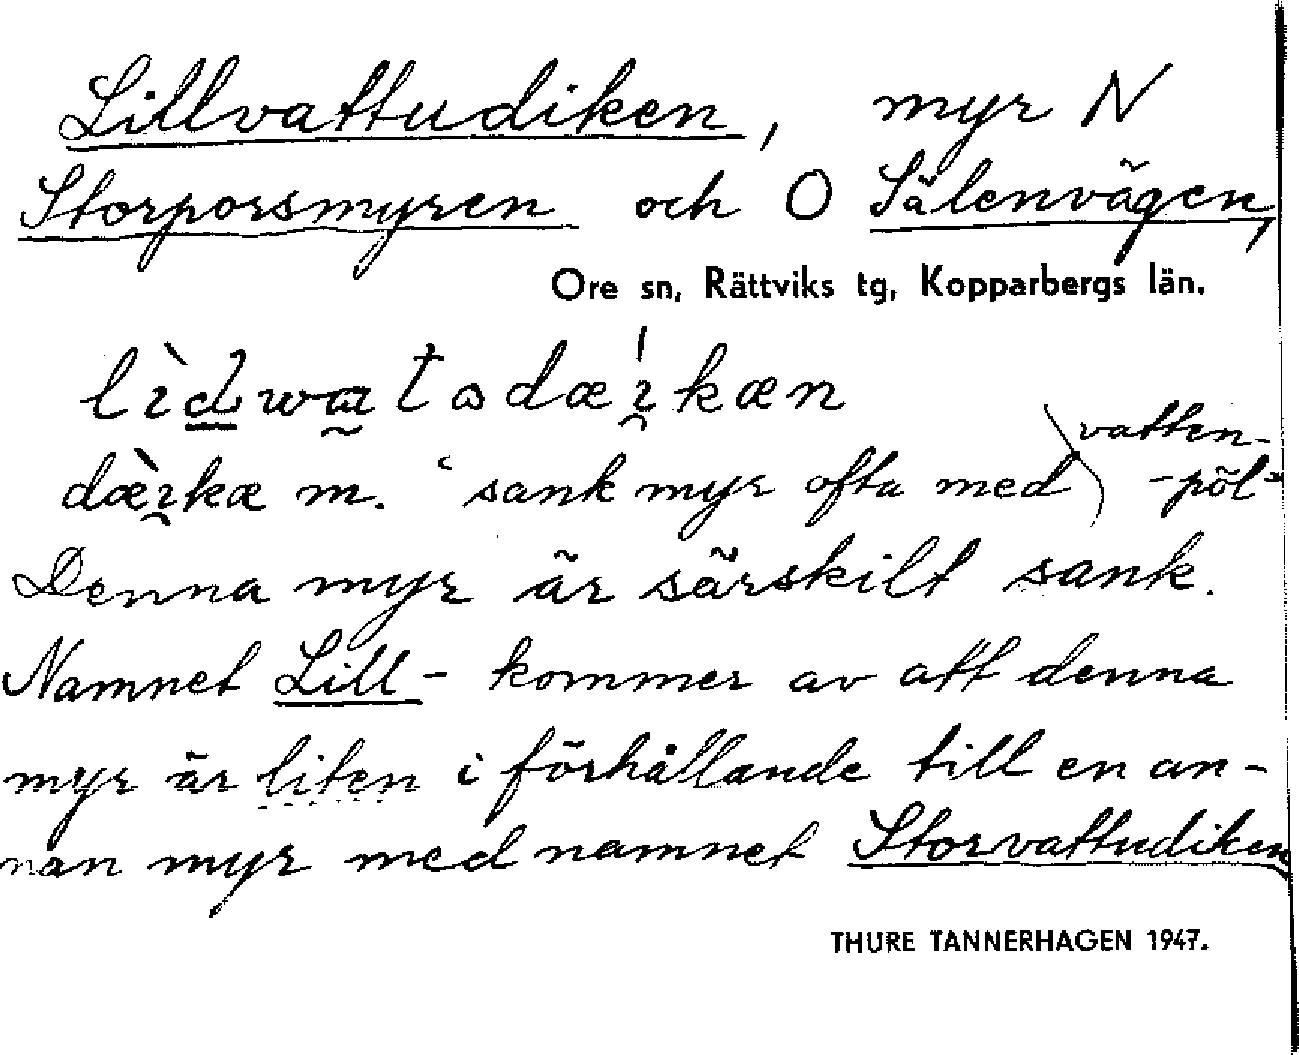 Lillvattudiken, myr N
Storporsmyren och O Sälenvägen,
Ore sn, Rättviks tg, Kopparbergs län.
dæ̀i̯kæ m. 'sank myr ofta med vatten-
-pöl'
Denna myr är särskilt sank.
Namnet Lill- kommer av att denna
myr är liten i förhållande till en an-
nan myr med namnet Storvattudiken
THURE TANNERHAGEN 1947.